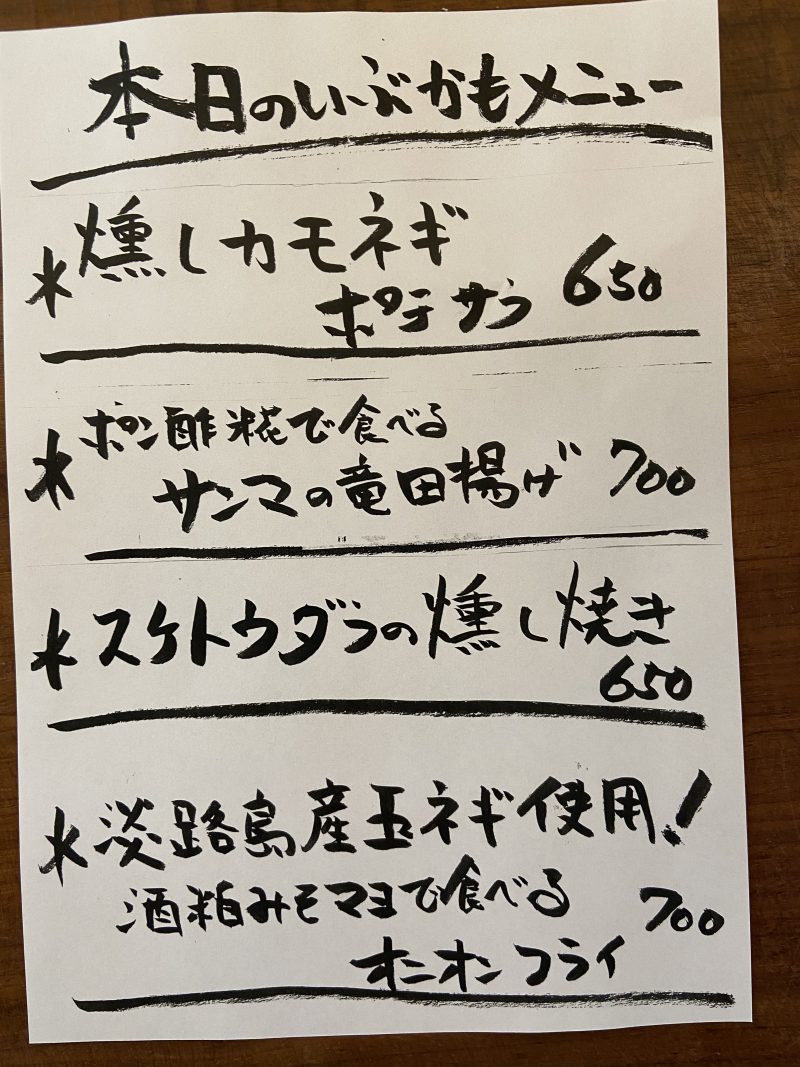 本日のいぶかもメニュー
*燻しカモネギ
ポテサラ 650
*ポン酢糀で食べる
サンマの竜田揚げ 700
*スケトウダラの燻し焼き
650
*淡路島産玉ネギ使用!
酒粕みそマヨで食べる 700
オニオンフライ